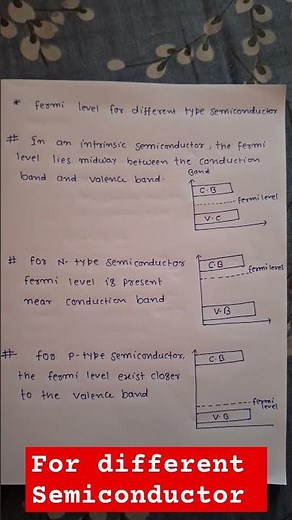 * Fermi level for different type semiconductor
# In an intrinsic semiconductor, the fermi
level lies midway between the conduction
band and valence band.
Band
C.B
fermi level
V.C
# for N-type semiconductor
fermi level is present
near conduction band
C.B
fermi level
V.B
# for P-type semiconductor,
the fermi level exist closer
to the valence band
C.B
fermi
level
V.B
For different
Semiconductor